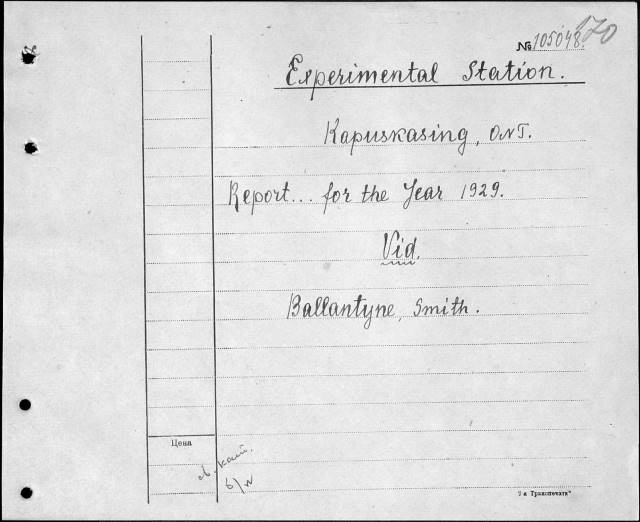 № 105048. 170
Experimental Station.
Kapuskasing, ONT.
Report... for the Year 1929.
Vid.
Ballantyne, Smith.
Цена
б/н
"я Транспечати"